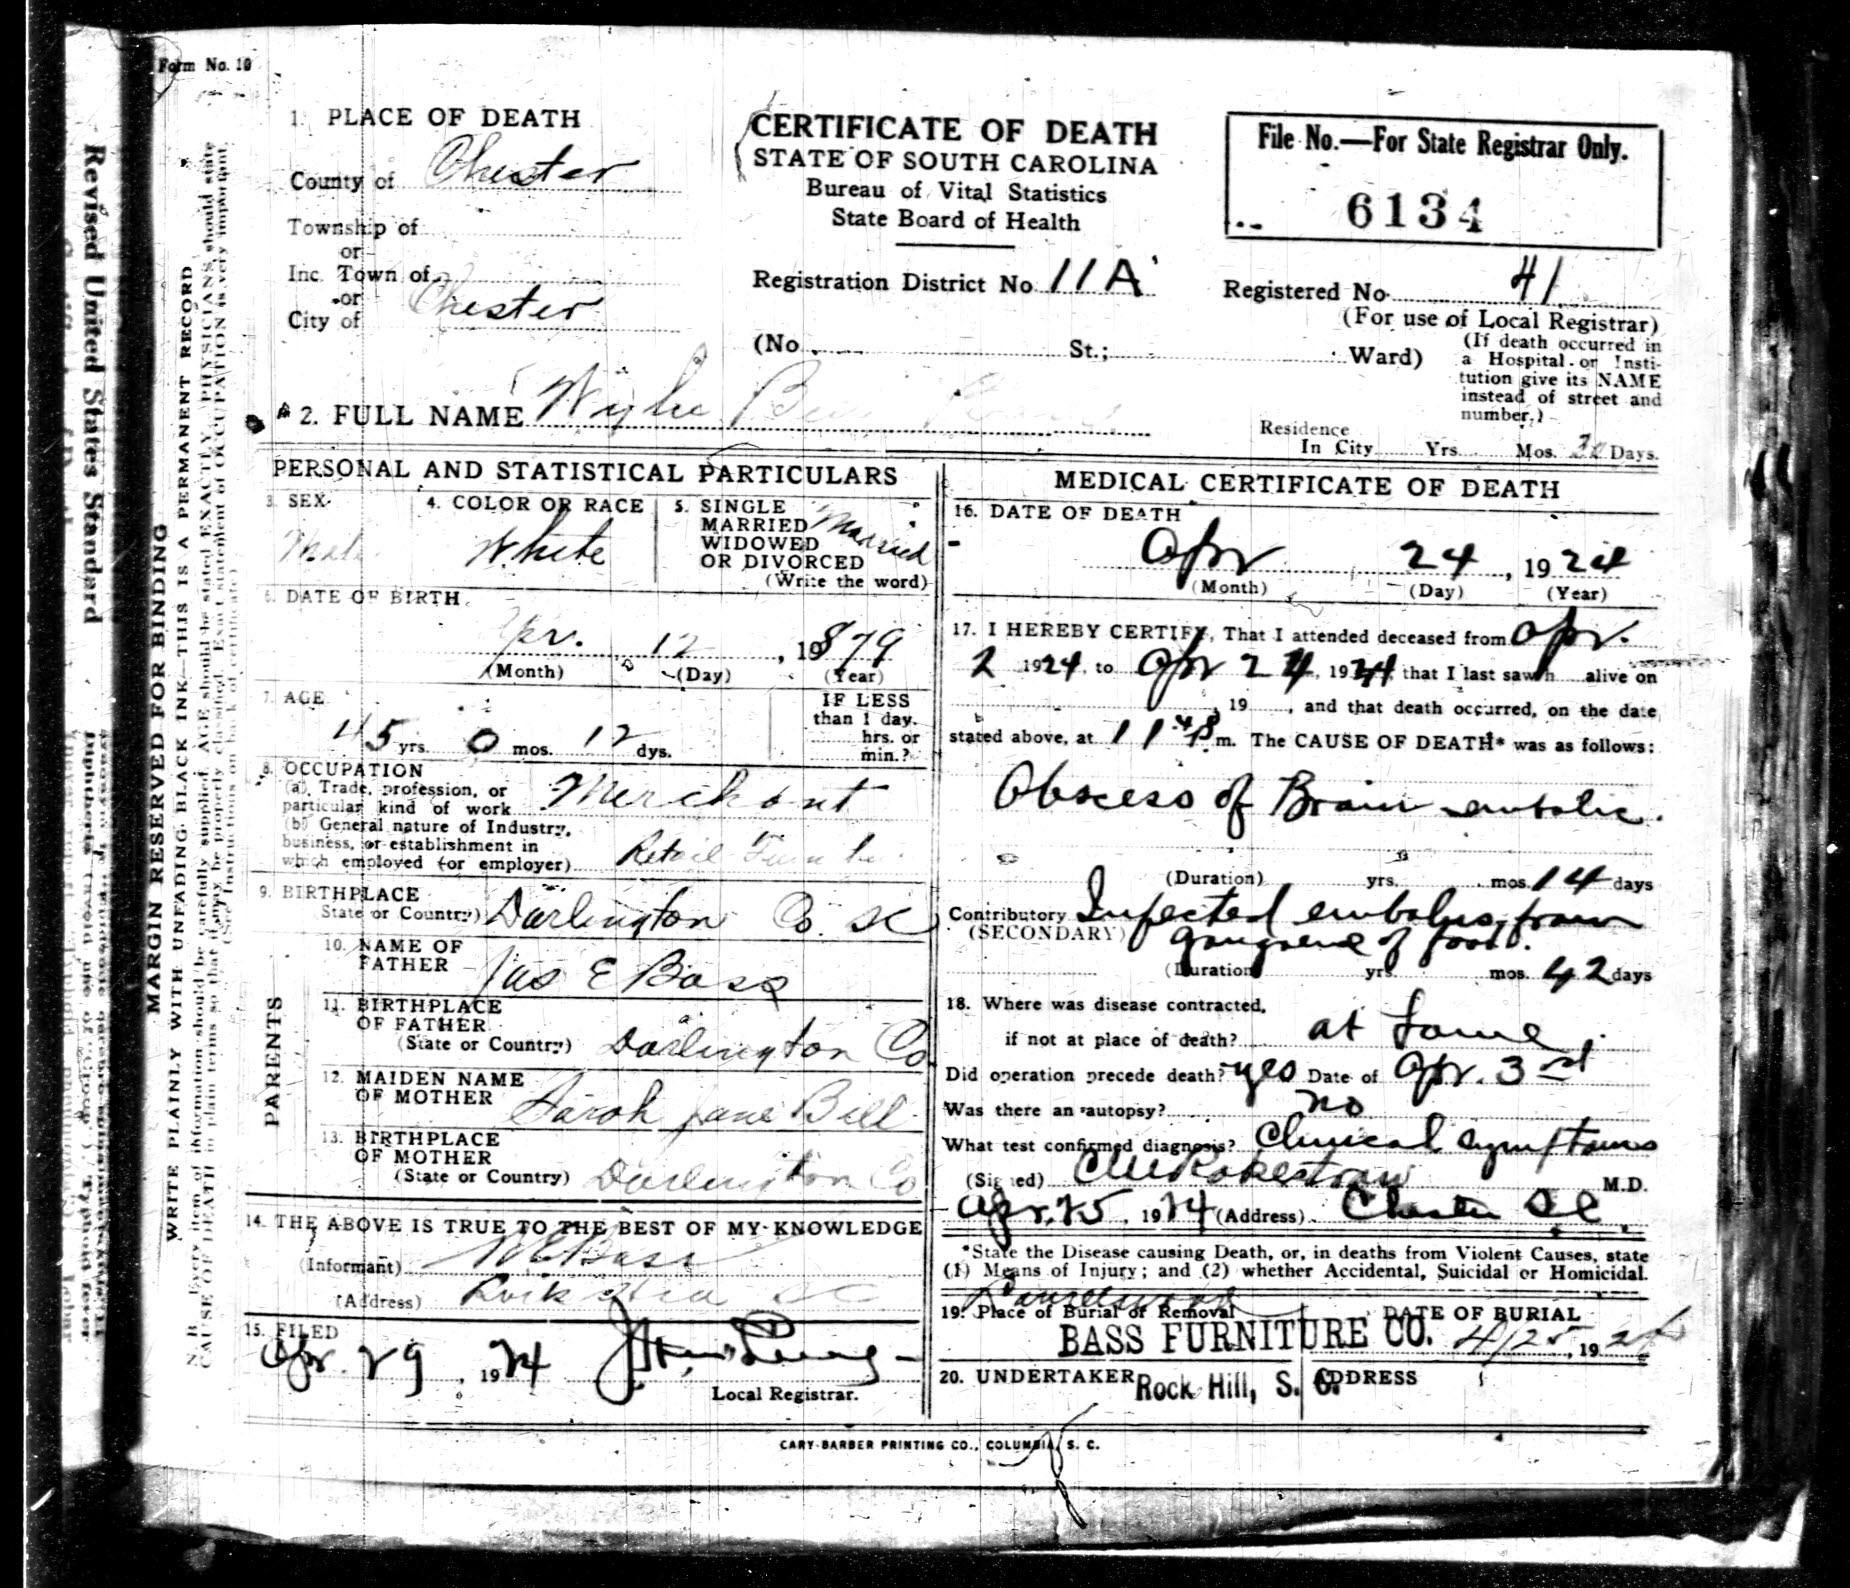 Form No. 10
1. PLACE OF DEATH
County of Chester
Township of
or
Inc. Town of
or
City of Chester
CERTIFICATE OF DEATH
STATE OF SOUTH CAROLINA
Bureau of Vital Statistics
State Board of Health
File No.—For State Registrar Only.
6134
Registration District No. 11A
Registered No. 41
(For use of Local Registrar)
(No. St.; Ward)
(If death occurred in
a Hospital or Insti-
tution give its NAME
instead of street and
number.)
2. FULL NAME Wylie
Residence
In City Yrs. Mos. Days.
PERSONAL AND STATISTICAL PARTICULARS
3. SEX
Male
4. COLOR OR RACE
White
5. SINGLE
MARRIED
WIDOWED
OR DIVORCED
(Write the word)
Married
6. DATE OF BIRTH
Apr. 12, 1879
(Month) (Day) (Year)
7. AGE
45 yrs. 0 mos. 12 dys.
IF LESS
than 1 day.
hrs. or
min.?
8. OCCUPATION
(a) Trade, profession, or
particular kind of work Merchant
(b) General nature of Industry,
business, or establishment in
which employed (or employer) Retail
9. BIRTHPLACE
State or Country) Darlington Co. SC
PARENTS
10. NAME OF
FATHER Jas E Bass
11. BIRTHPLACE
OF FATHER
(State or Country) Darlington Co
12. MAIDEN NAME
OF MOTHER Sarah Jane Bell
13. BIRTHPLACE
OF MOTHER
(State or Country) Darlington Co
14. THE ABOVE IS TRUE TO THE BEST OF MY KNOWLEDGE
(Informant) Bass
(Address) Rock Hill SC
15. FILED
Apr. 29, 1924
Local Registrar.
MEDICAL CERTIFICATE OF DEATH
16. DATE OF DEATH
Apr 24, 1924
(Month) (Day) (Year)
17. I HEREBY CERTIFY, That I attended deceased from Apr.
2 1924, to Apr 24, 1924, that I last saw h alive on
, 19 , and that death occurred, on the date
stated above, at 11 m. The CAUSE OF DEATH* was as follows:
Abscess of Brain embolic.
(Duration) yrs. mos. 14 days
Contributory Infected embolus from
(SECONDARY) gangrene of foot.
(Duration) yrs. mos. 42 days
18. Where was disease contracted,
if not at place of death? at home
Did operation precede death? yes Date of Apr. 3rd
Was there an autopsy? no
What test confirmed diagnosis? Clinical symptoms
(Signed) M.D.
Apr. 25, 1924 (Address) Chester S.C.
*State the Disease causing Death, or, in deaths from Violent Causes, state
(1) Means of Injury; and (2) whether Accidental, Suicidal or Homicidal.
19. Place of Burial or Removal
Laurelwood
DATE OF BURIAL
4/25, 1924
BASS FURNITURE CO.
20. UNDERTAKER
Rock Hill, S. C.
ADDRESS
CARY-BARBER PRINTING CO., COLUMBIA, S. C.
MARGIN RESERVED FOR BINDING
WRITE PLAINLY WITH UNFADING BLACK INK—THIS IS A PERMANENT RECORD
N. B.—Every item of information should be carefully supplied. AGE should be stated EXACTLY. PHYSICIANS should state
CAUSE OF DEATH in plain terms so that it may be properly classified. Exact statement of OCCUPATION is very important.
(See Instructions on back of certificate)
Revised United States Standard